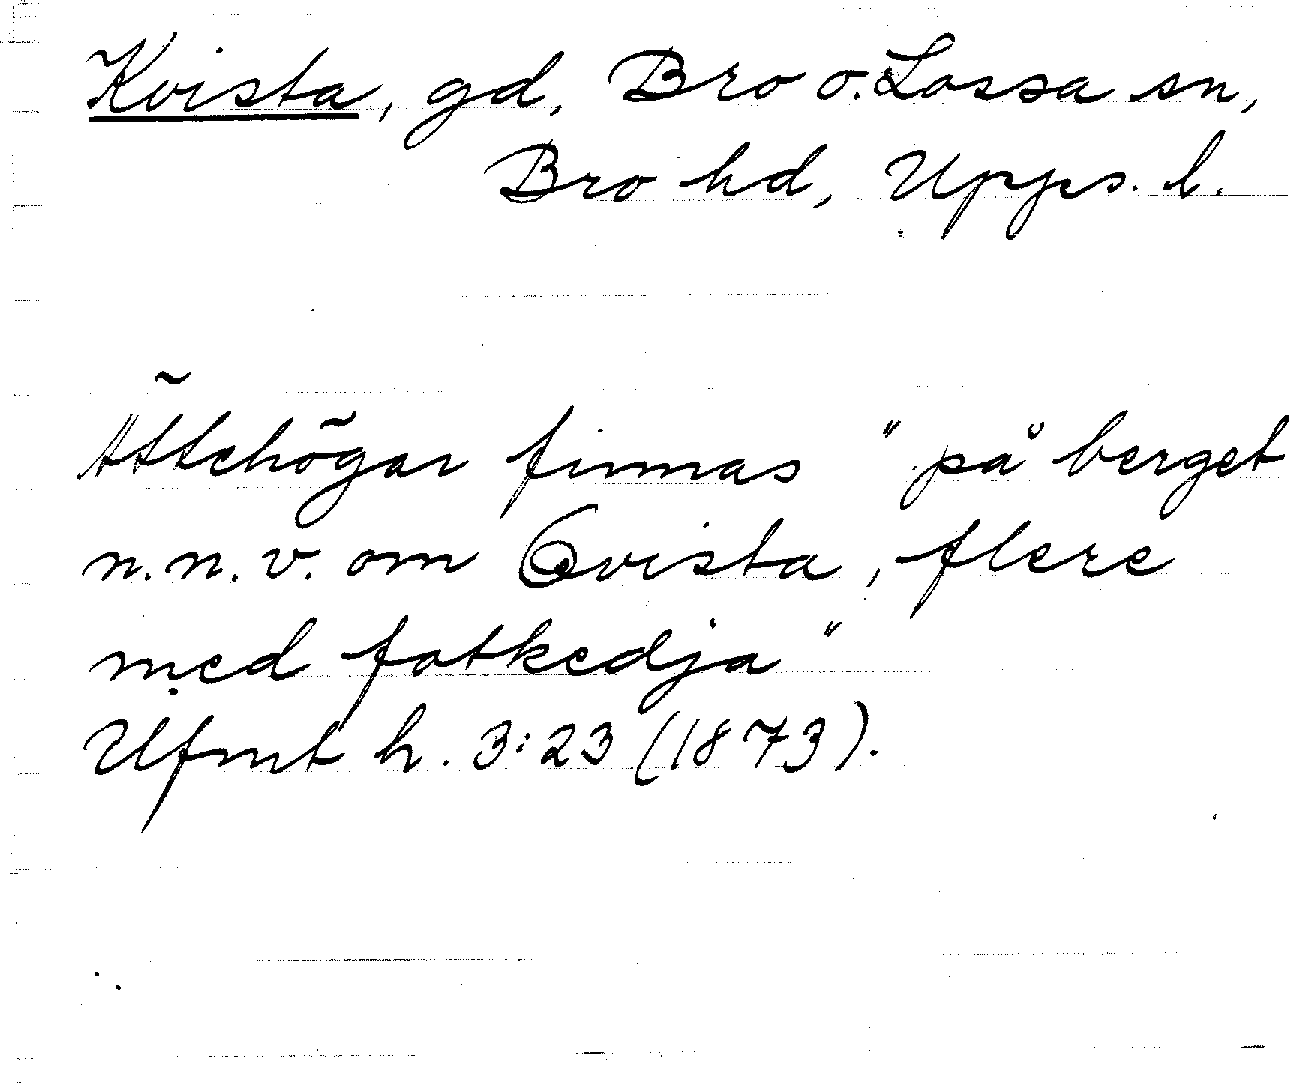 Kvista, gd, Bro o. Lossa sn,
Bro hd, Upps. l.
Ättehögar finnas "på berget
n.n.v. om Qvista, flere
med fotkedja"
Ufmt h. 3:23 (1873).